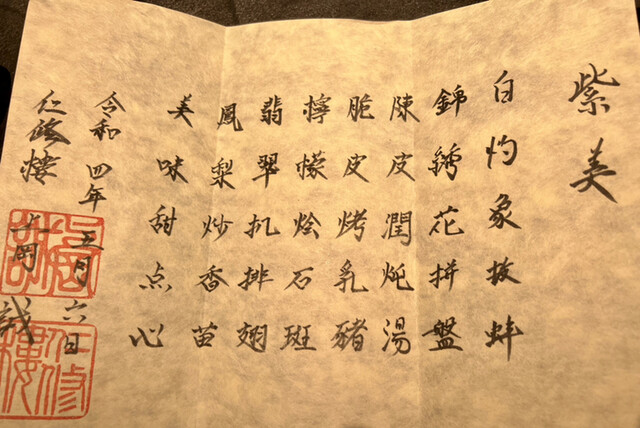 紫美
白灼象拔蚌
錦綉花拼盤
陳皮潤炖湯
脆皮烤乳豬
檸檬烩石斑
翡翠扒排翅
鳳梨炒香苗
美味甜点心
令和四年五月六日
仁修樓
上岡誠